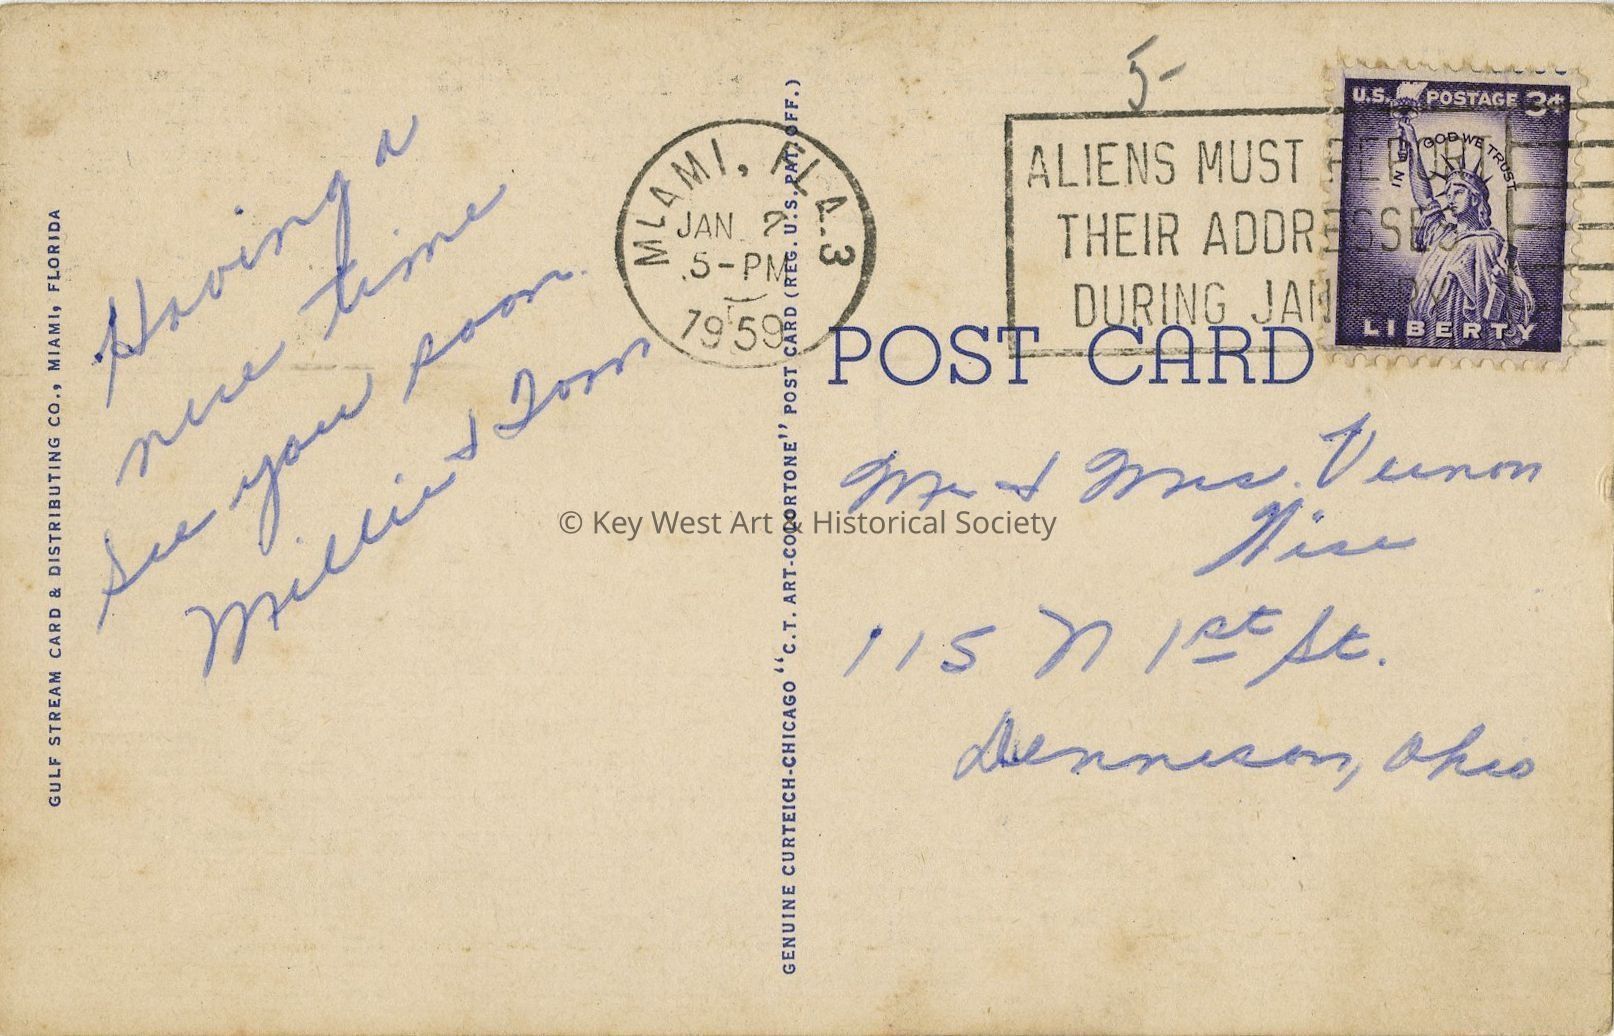 Having a
nice time
See you soon.
Millie & Tom
GULF STREAM CARD & DISTRIBUTING CO., MIAMI, FLORIDA
GENUINE CURTEICH-CHICAGO "C.T. ART-COLORTONE" POST CARD (REG. U.S. PAT. OFF.)
MIAMI, FLA. 3
JAN 2
5-PM
1959
5-
ALIENS MUST REPORT
THEIR ADDRESSES
DURING JANUARY
U.S. POSTAGE 3¢
IN GOD WE TRUST
LIBERTY
POST CARD
Mr & Mrs. Vernon
115 N 1st St.
Dennison, Ohio
© Key West Art & Historical Society